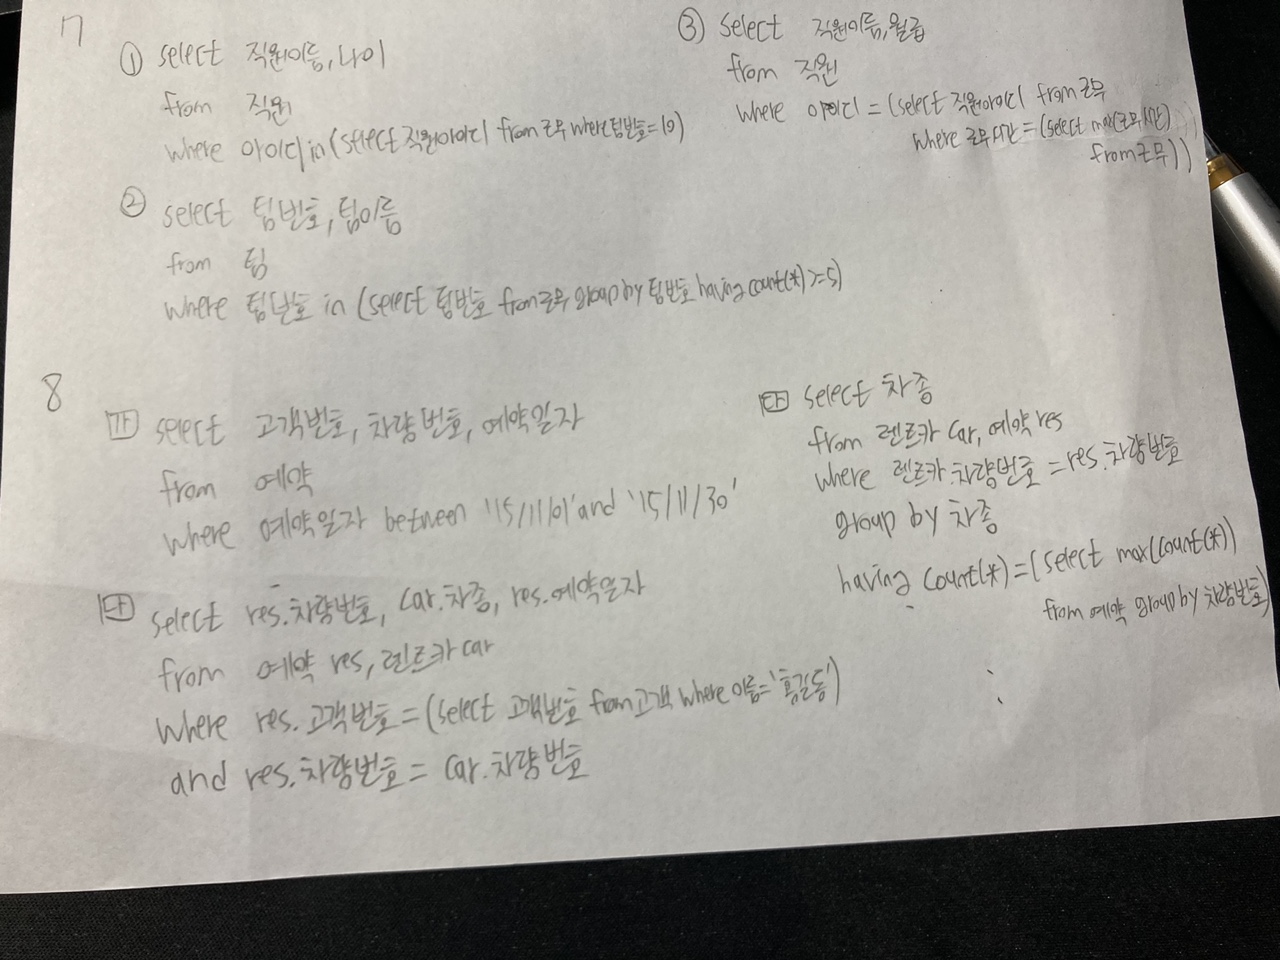 7
① select 직원이름, 나이
from 직원
where 아이디 in (select 직원아이디 from 근무 where 팀번호=10)
② select 팀번호, 팀이름
from 팀
where 팀번호 in (select 팀번호 from 근무 group by 팀번호 having count(*) >= 5)
③ select 직원이름, 월급
from 직원
where 아이디 = (select 직원아이디 from 근무
where 근무시간 = (select max(근무시간)
from 근무))
8
가 select 고객번호, 차량번호, 예약일자
from 예약
where 예약일자 between '15/11/01' and '15/11/30'
나 select res.차량번호, car.차종, res.예약일자
from 예약 res, 렌트카 car
where res.고객번호 = (select 고객번호 from 고객 where 이름='홍길동')
and res.차량번호 = car.차량번호
다 select 차종
from 렌트카 car, 예약 res
where 렌트카.차량번호 = res.차량번호
group by 차종
having count(*) = (select max(count(*))
from 예약 group by 차량번호)